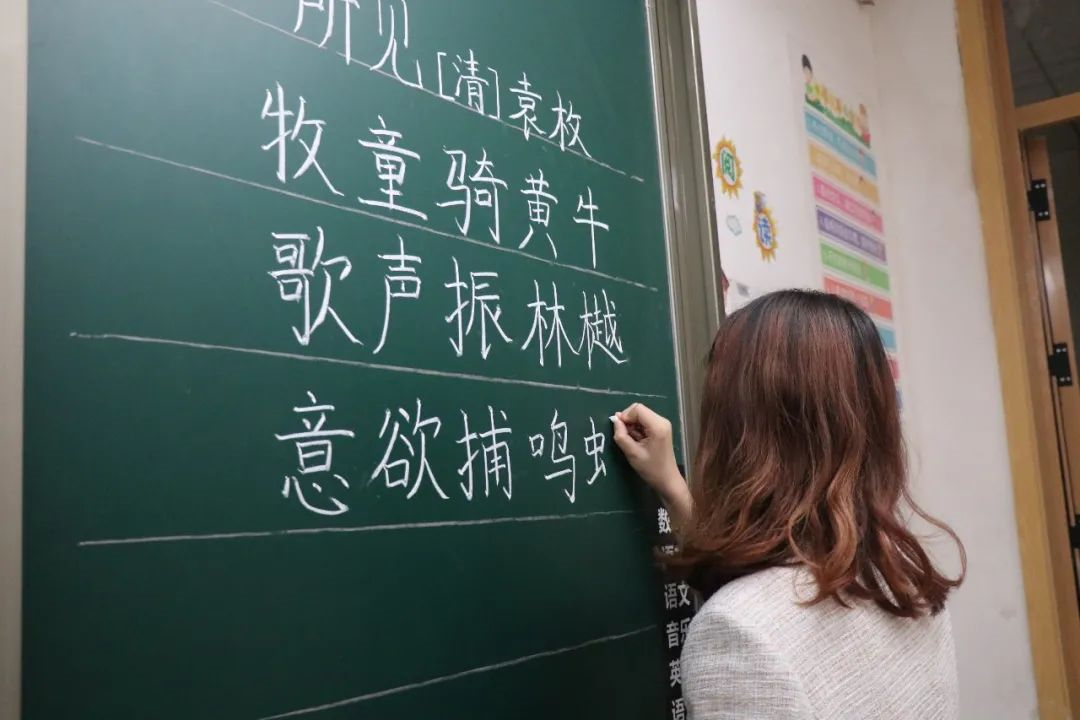 所见[清]袁枚
牧童骑黄牛
歌声振林樾
意欲捕鸣虫
阅
读
数
语文
音乐
英
语